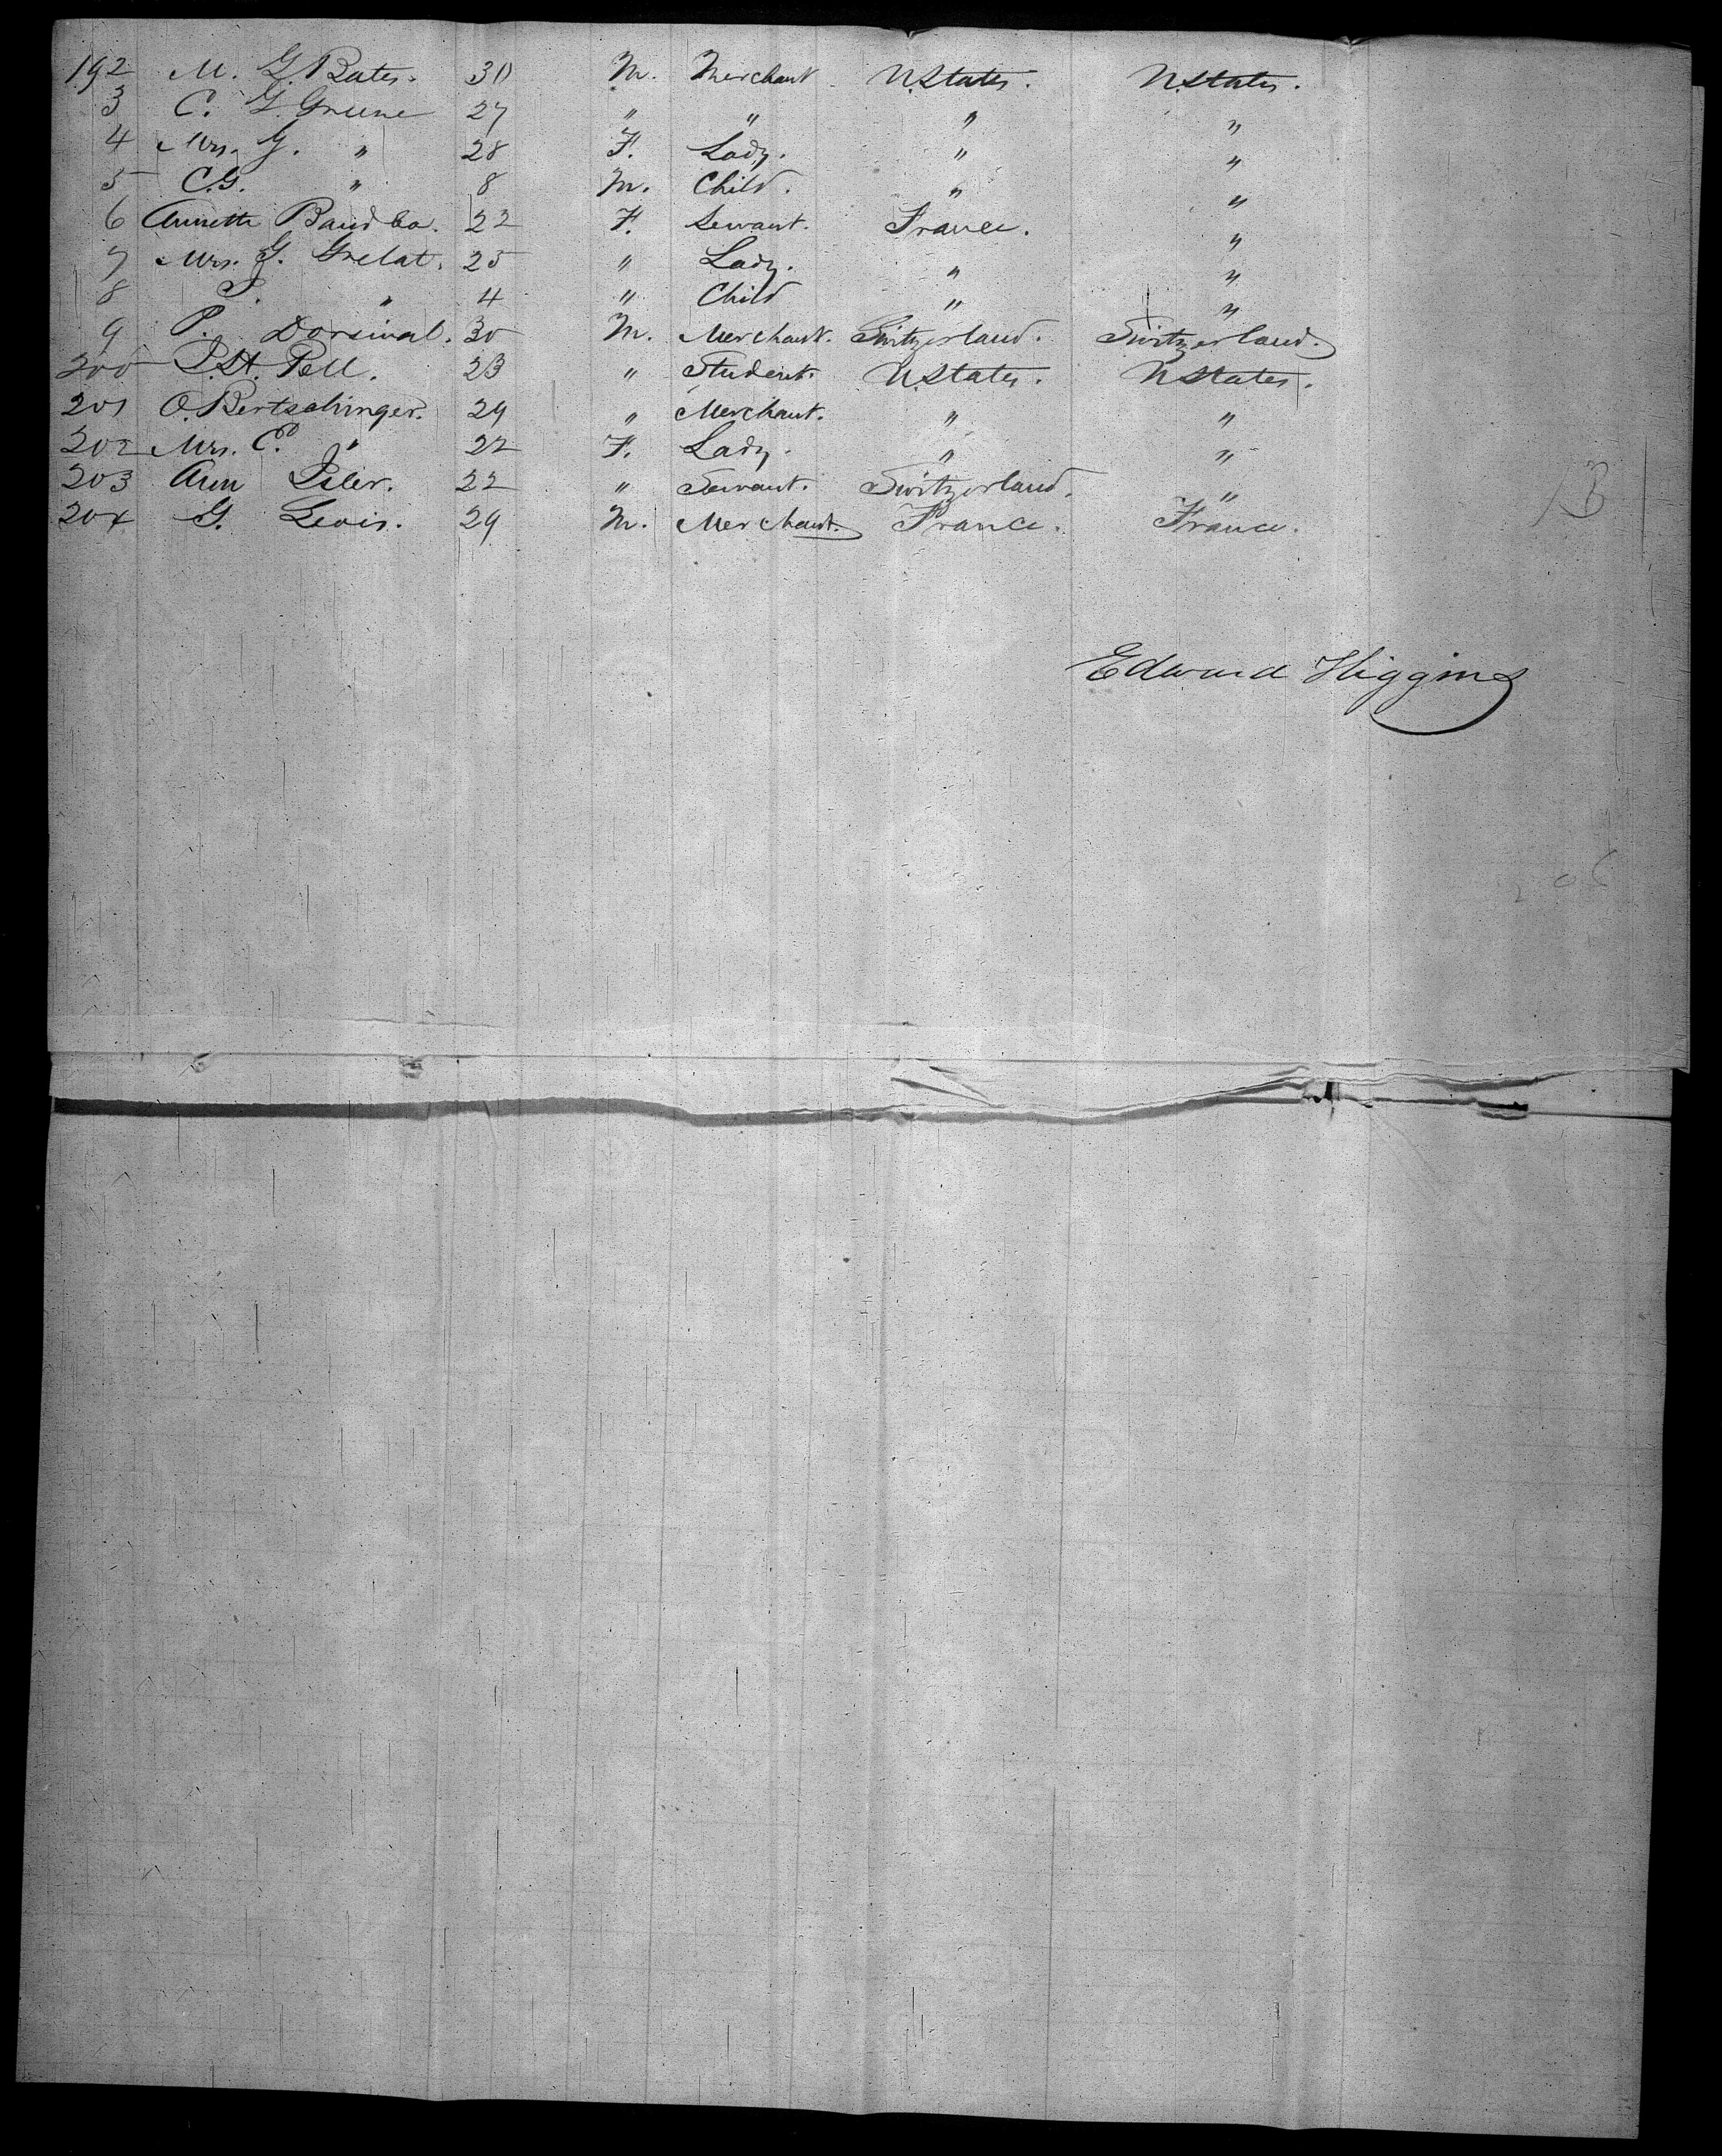 192 M. G. Bates. 30 M. Merchant U. States. U. States.
3 C. G. Greene 27 " " " "
4 Mrs. G. " 28 F. Lady. " "
5 C.G. " 8 M. Child. " "
6 Annette 22 F. Servant. France. "
7 Mrs. G. Grelat. 25 " Lady. " "
8 " 4 " Child " "
9 P. Dorsival. 30 M. Merchant. Switzerland. Switzerland.
200 Pell. 23 " Student. U. States. U States.
201 O. Bertschinger. 29 " Merchant. " "
202 Mrs. C. " 22 F. Lady. " "
203 Ann Isler. 22 " Servant. Switzerland. "
204 G. Levis. 29 M. Merchant. France. France.
Edward Higgins